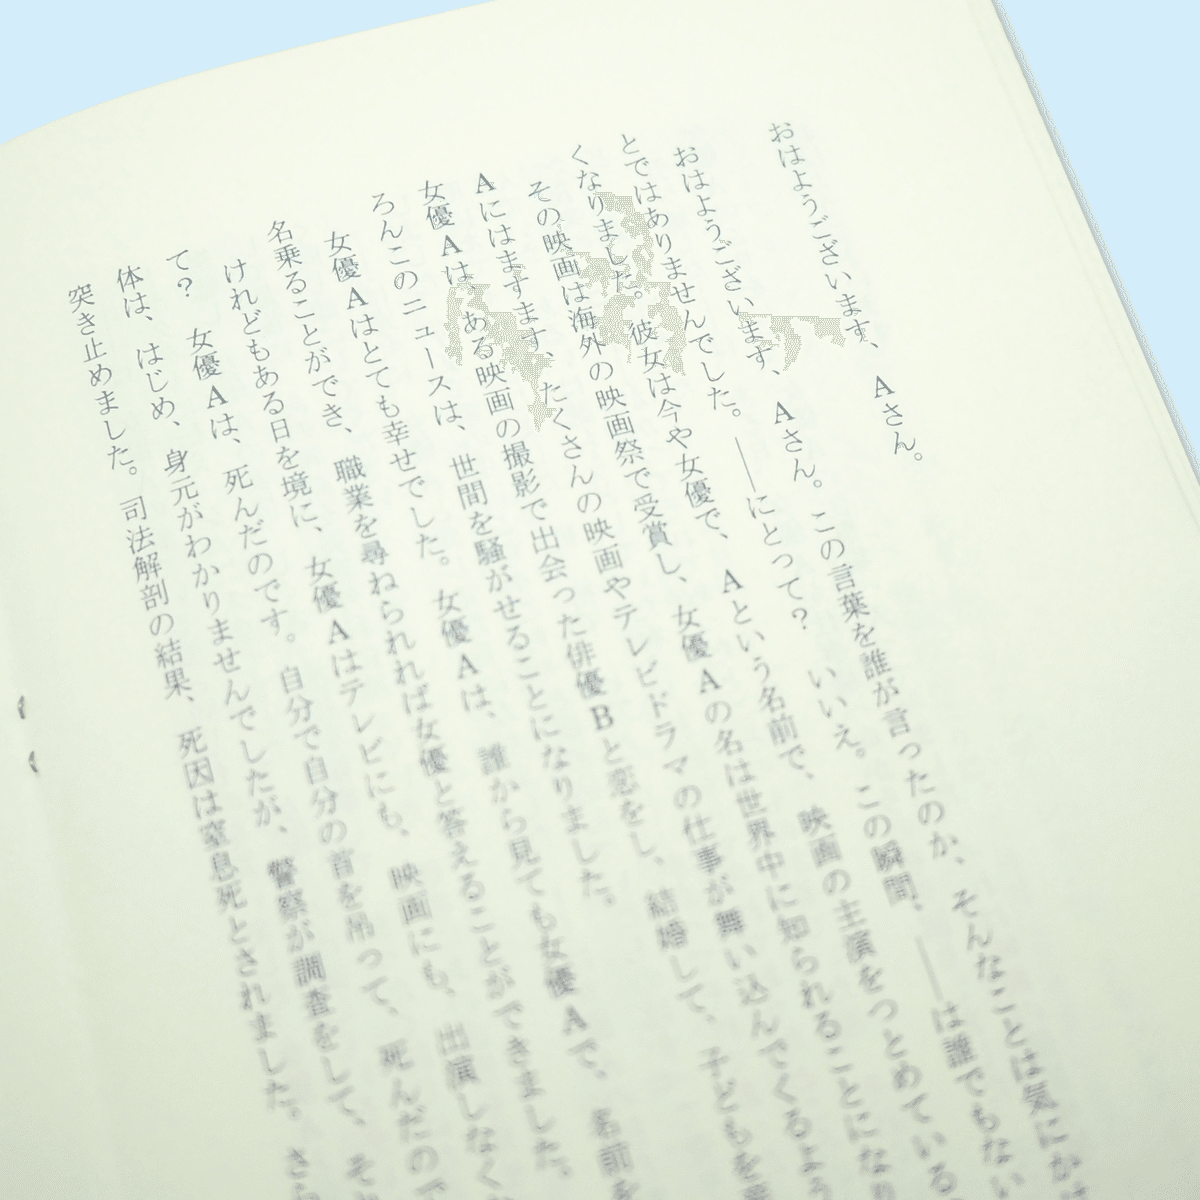 おはようございます、Aさん。
おはようございます、Aさん。この言葉を誰が言ったのか、そんなことは気にか
とではありませんでした。――にとって？　いいえ。この瞬間、――は誰でもない
くなりました。彼女は今や女優で、Aという名前で、映画の主演をつとめている
その映画は海外の映画祭で受賞し、女優Aの名は世界中に知られることになり
Aにはますます、たくさんの映画やテレビドラマの仕事が舞い込んでくるよう
女優Aは、ある映画の撮影で出会った俳優Bと恋をし、結婚して、子どもを
ろんこのニュースは、世間を騒がせることになりました。
女優Aはとても幸せでした。女優Aは、誰から見ても女優Aで、名前を
名乗ることができ、職業を尋ねられれば女優と答えることができました。
けれどもある日を境に、女優Aはテレビにも、映画にも、出演しなく
て？　女優Aは、死んだのです。自分で自分の首を吊って、死んだので
体は、はじめ、身元がわかりませんでしたが、警察が調査をして、そ
突き止めました。司法解剖の結果、死因は窒息死とされました。さら